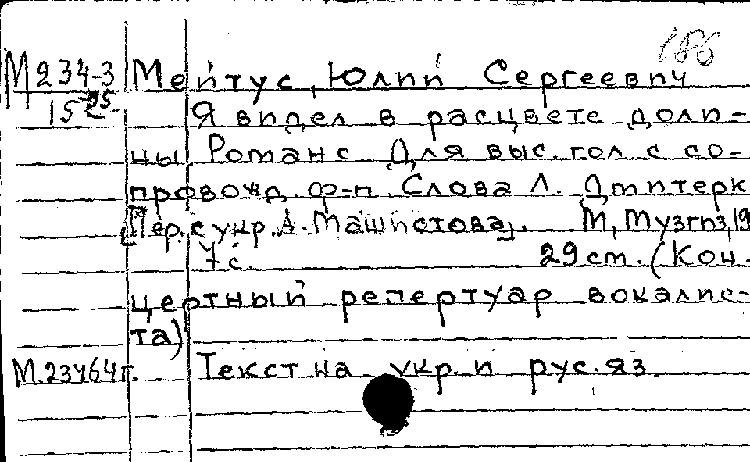 186
М 234-3 Мейтус, Юлий Сергеевич
15 Я видел в расцвете доли-
ны. Романс. Для выс. гол. с со-
провожд. ф-п. Слова Л. Дмитерк
[Пер. с укр. А. Машистова]. М, Музгиз, 19
7 с. 29 cm. (Кон-
цертный репертуар вокалис-
та)
М.23464г. Текст на укр. и рус. яз.